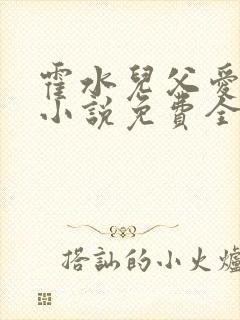 霍水兒父愛
小説免費全
搭訕的小火爐